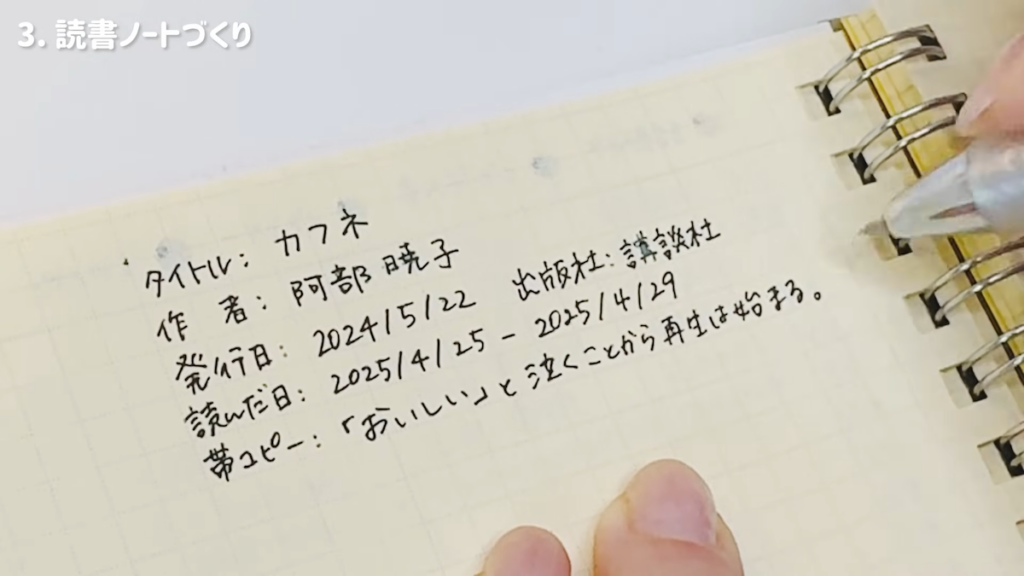 3. 読書ノートづくり
タイトル: カフネ
作 者: 阿部暁子
発行日: 2024/5/22 出版社: 講談社
読んだ日: 2025/4/25 - 2025/4/29
帯コピー: 「おいしい」と泣くことから再生は始まる。